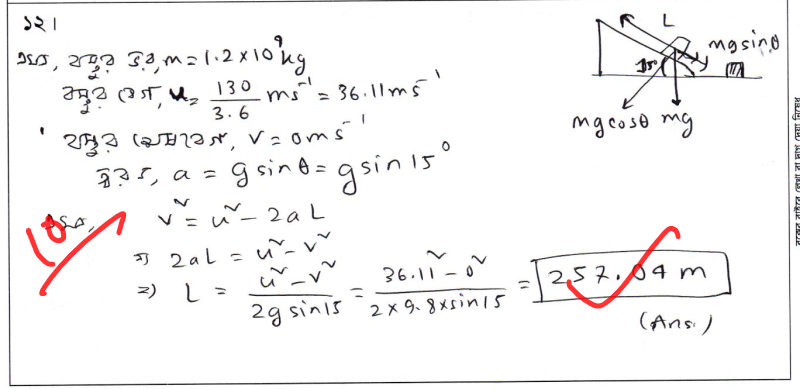 ১২।
এখানে, বস্তুর ভর, m = 1.2×10⁹ kg
বস্তুর বেগ, u = 130/3.6 ms⁻¹ = 36.11 ms⁻¹
বস্তুর শেষবেগ, v = 0 ms⁻¹
ত্বরণ, a = g sinθ = g sin15°
এখন, v² = u² - 2aL
বা, 2aL = u² - v²
⇒ L = (u² - v²)/(2g sin15) = (36.11² - 0²)/(2×9.8×sin15) = 257.04 m
(Ans.)
10
L
mg sinθ
15°
mg cosθ mg